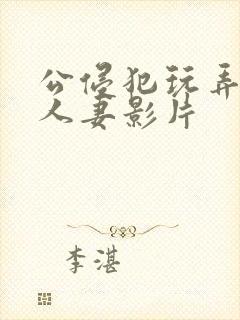 公侵犯玩弄
人妻影片
李湛